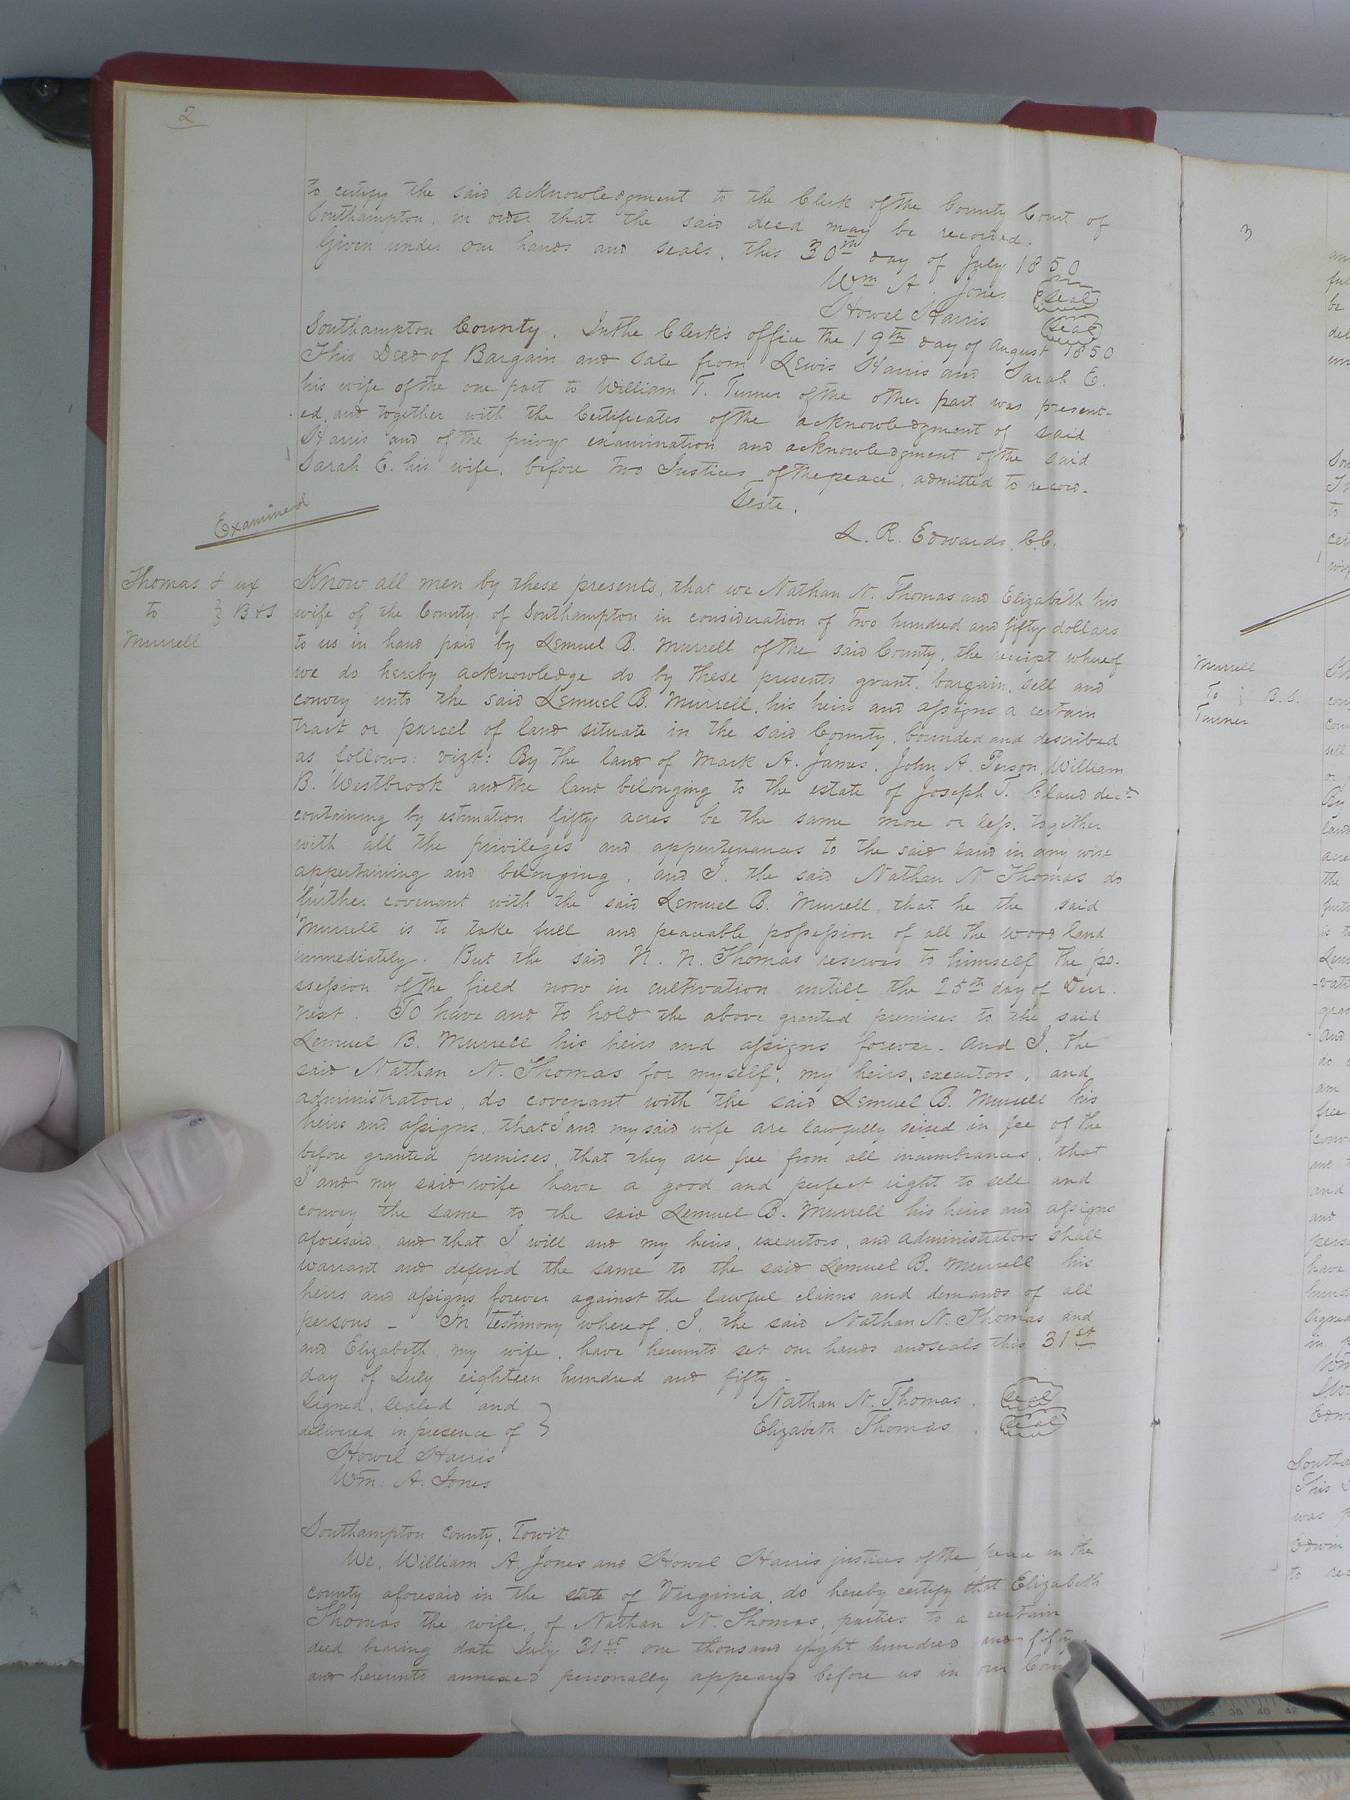 2
to certify the said acknowledgment to the Clerk of the County Court of
Southampton, in order that the said deed may be recorded.
Given under our hands and seals, this 30th day of July 1850
Wm A. Jones (seal)
Howel Harris (seal)
Southampton County. In the Clerk's office the 19th day of August 1850
This Deed of Bargain and sale from Lewis Harris and Sarah E.
his wife of the one part to William T. Turner of the other part was present-
ed, and together with the Certificates of the acknowledgment of said
Harris and of the privy examination and acknowledgment of the said
Sarah E. his wife, before two Justices of the peace, admitted to record.
Teste,
L. R. Edwards, C.C.
Examined
Thomas & ux
to } B & S
Murrell
Know all men by these presents, that we Nathan N. Thomas and Elizabeth his
wife of the County of Southampton in consideration of two hundred and fifty dollars
to us in hand paid by Lemuel B. Murrell of the said County, the receipt whereof
we do hereby acknowledge do by these presents grant, bargain, sell and
convey unto the said Lemuel B. Murrell, his heirs and assigns a certain
tract or parcel of land situate in the said County, bounded and described
as follows: vizt: By the land of Mark A. James, John A. Person, William
B. Westbrook and the land belonging to the estate of Joseph T. Claud decd
containing by estimation fifty acres be the same more or less, together
with all the privileges and appurtenances to the said land in any wise
appertaining and belonging, and I, the said Nathan N Thomas do
further covenant with the said Lemuel B. Murrell, that he the said
Murrell is to take full and peaceable possession of all the wood land
immediately. But the said N. N. Thomas reserves to himself the po-
ssession of the field now in cultivation untill the 25th day of Decr.
next. To have and to hold the above granted premises to the said
Lemuel B. Murrell his heirs and assigns forever. And I, the
said Nathan N. Thomas for myself, my heirs, executors, and
administrators, do covenant with the said Lemuel B. Murrell his
heirs and assigns, that I and my said wife are lawfully seised in fee of the
before granted premises, that they are free from all incumbrances, that
I and my said wife have a good and perfect right to sell and
convey the same to the said Lemuel B. Murrell his heirs and assigns
aforesaid, and that I will and my heirs, executors, and administrators shall
warrant and defend the same to the said Lemuel B. Murrell his
heirs and assigns forever against the lawful claims and demands of all
persons - In testimony whereof, I, the said Nathan N. Thomas and
and Elizabeth my wife, have hereunto set our hands and seals this 31st
day of July eighteen hundred and fifty.
Signed, sealed and
delivered in presence of }
Howel Harris
Wm. A. Jones
Nathan N. Thomas. (seal)
Elizabeth Thomas. (seal)
Southampton County, Towit:
We, William A Jones and Howel Harris justices of the peace in the
county aforesaid in the state of Virginia, do hereby certify that Elizabeth
Thomas the wife of Nathan N. Thomas, parties to a certain
deed bearing date July 31st one thousand eight hundred and fifty
and hereunto annexed personally appeared before us in our
3
Murrell
To } B. S.
Turner